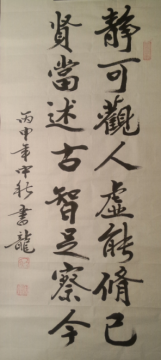 靜可觀人虛能脩己
賢當述古智足察今
丙申年中秋書龍